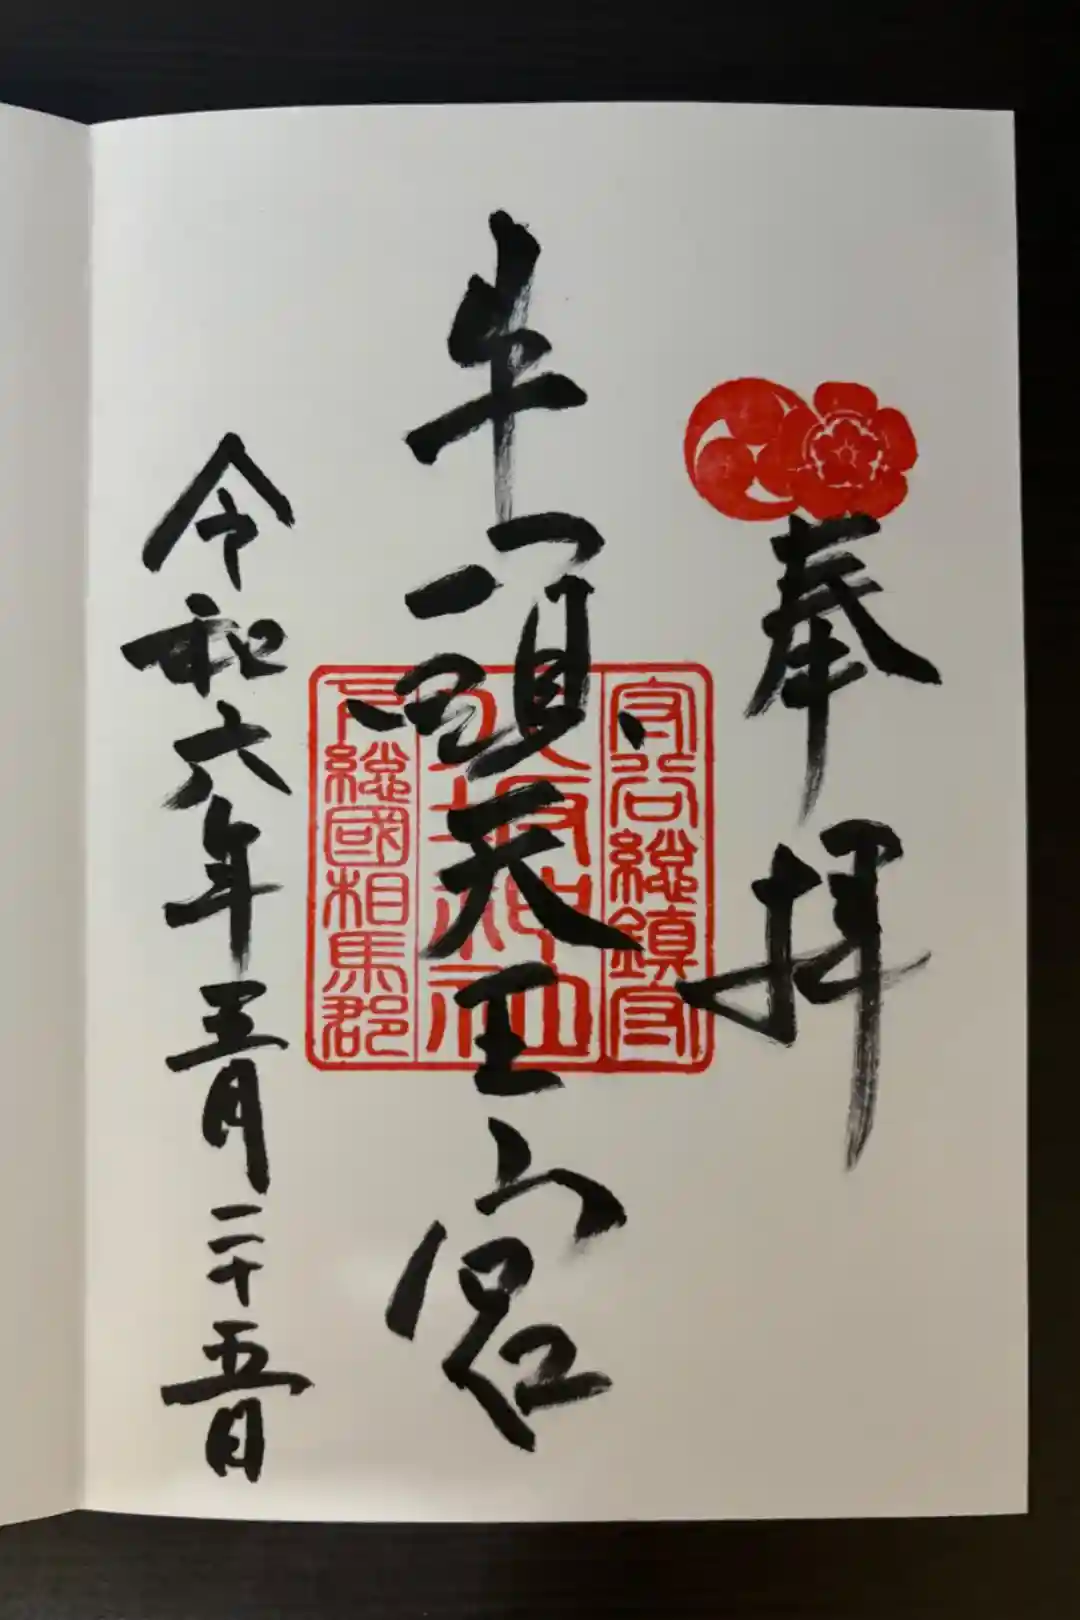 奉拝
牛頭天王宮
守谷総鎮守
八坂神社
下総國相馬郡
令和六年五月二十五日